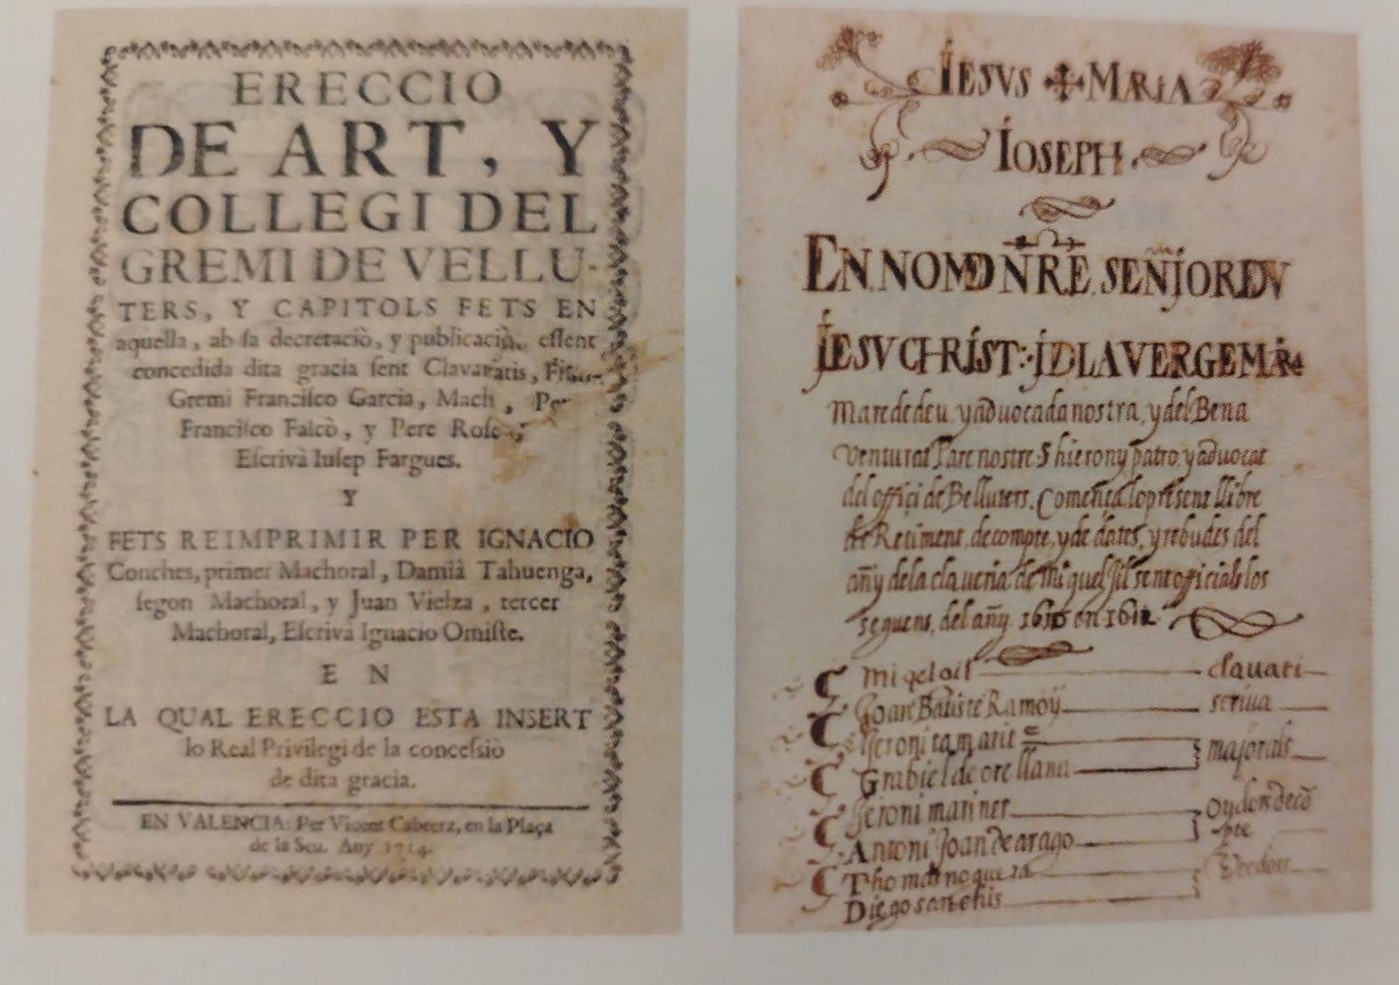 ERECCIO
DE ART, Y
COLLEGI DEL
GREMI DE VELLU-
TERS, Y CAPITOLS FETS EN
aquella, ab sa decretaciò, y publicaciò, essent
concedida dita gracia sent Clavaratis,
Gremi Francisco Garcia, Mach ,
Francisco Falcò, y Pere
Escrivà Iusep Fargues.
Y
FETS REIMPRIMIR PER IGNACIO
Conches, primer Machoral, Damià Tahuenga,
segon Machoral, y Juan Vielza, tercer
Machoral, Escrivà Ignacio Omiste.
E N
LA QUAL ERECCIO ESTA INSERT
lo Real Privilegi de la concessiò
de dita gracia.
EN VALENCIA: Per Vicent Cabrera, en la Plaça
de la Seu. Any 1714.
IESVS ✠ MARIA
IOSEPH
EN NOM D NRE SENJOR DV
IESVCHRIST: J D LA VERGE MARIA
Mare de deu, y aduocada nostra, y del Bena
venturat Pare nostre S hierony patro, y aduocat
del offiçi de Belluters. Comença lo present llibre
de Retiment, de compte, y de dates, y rebudes del
añy de la claueria de Miquel Gil sent officials los
seguens, del añy en 1612
Miqel Gil clauari
Joan Batiste Ramoy scriua
Jeroni tamarit
Grabiel de orellana majorals
Jeroni mariner oydors de cō
Antoni Joan de arago pte
Thomas noquera
Diego